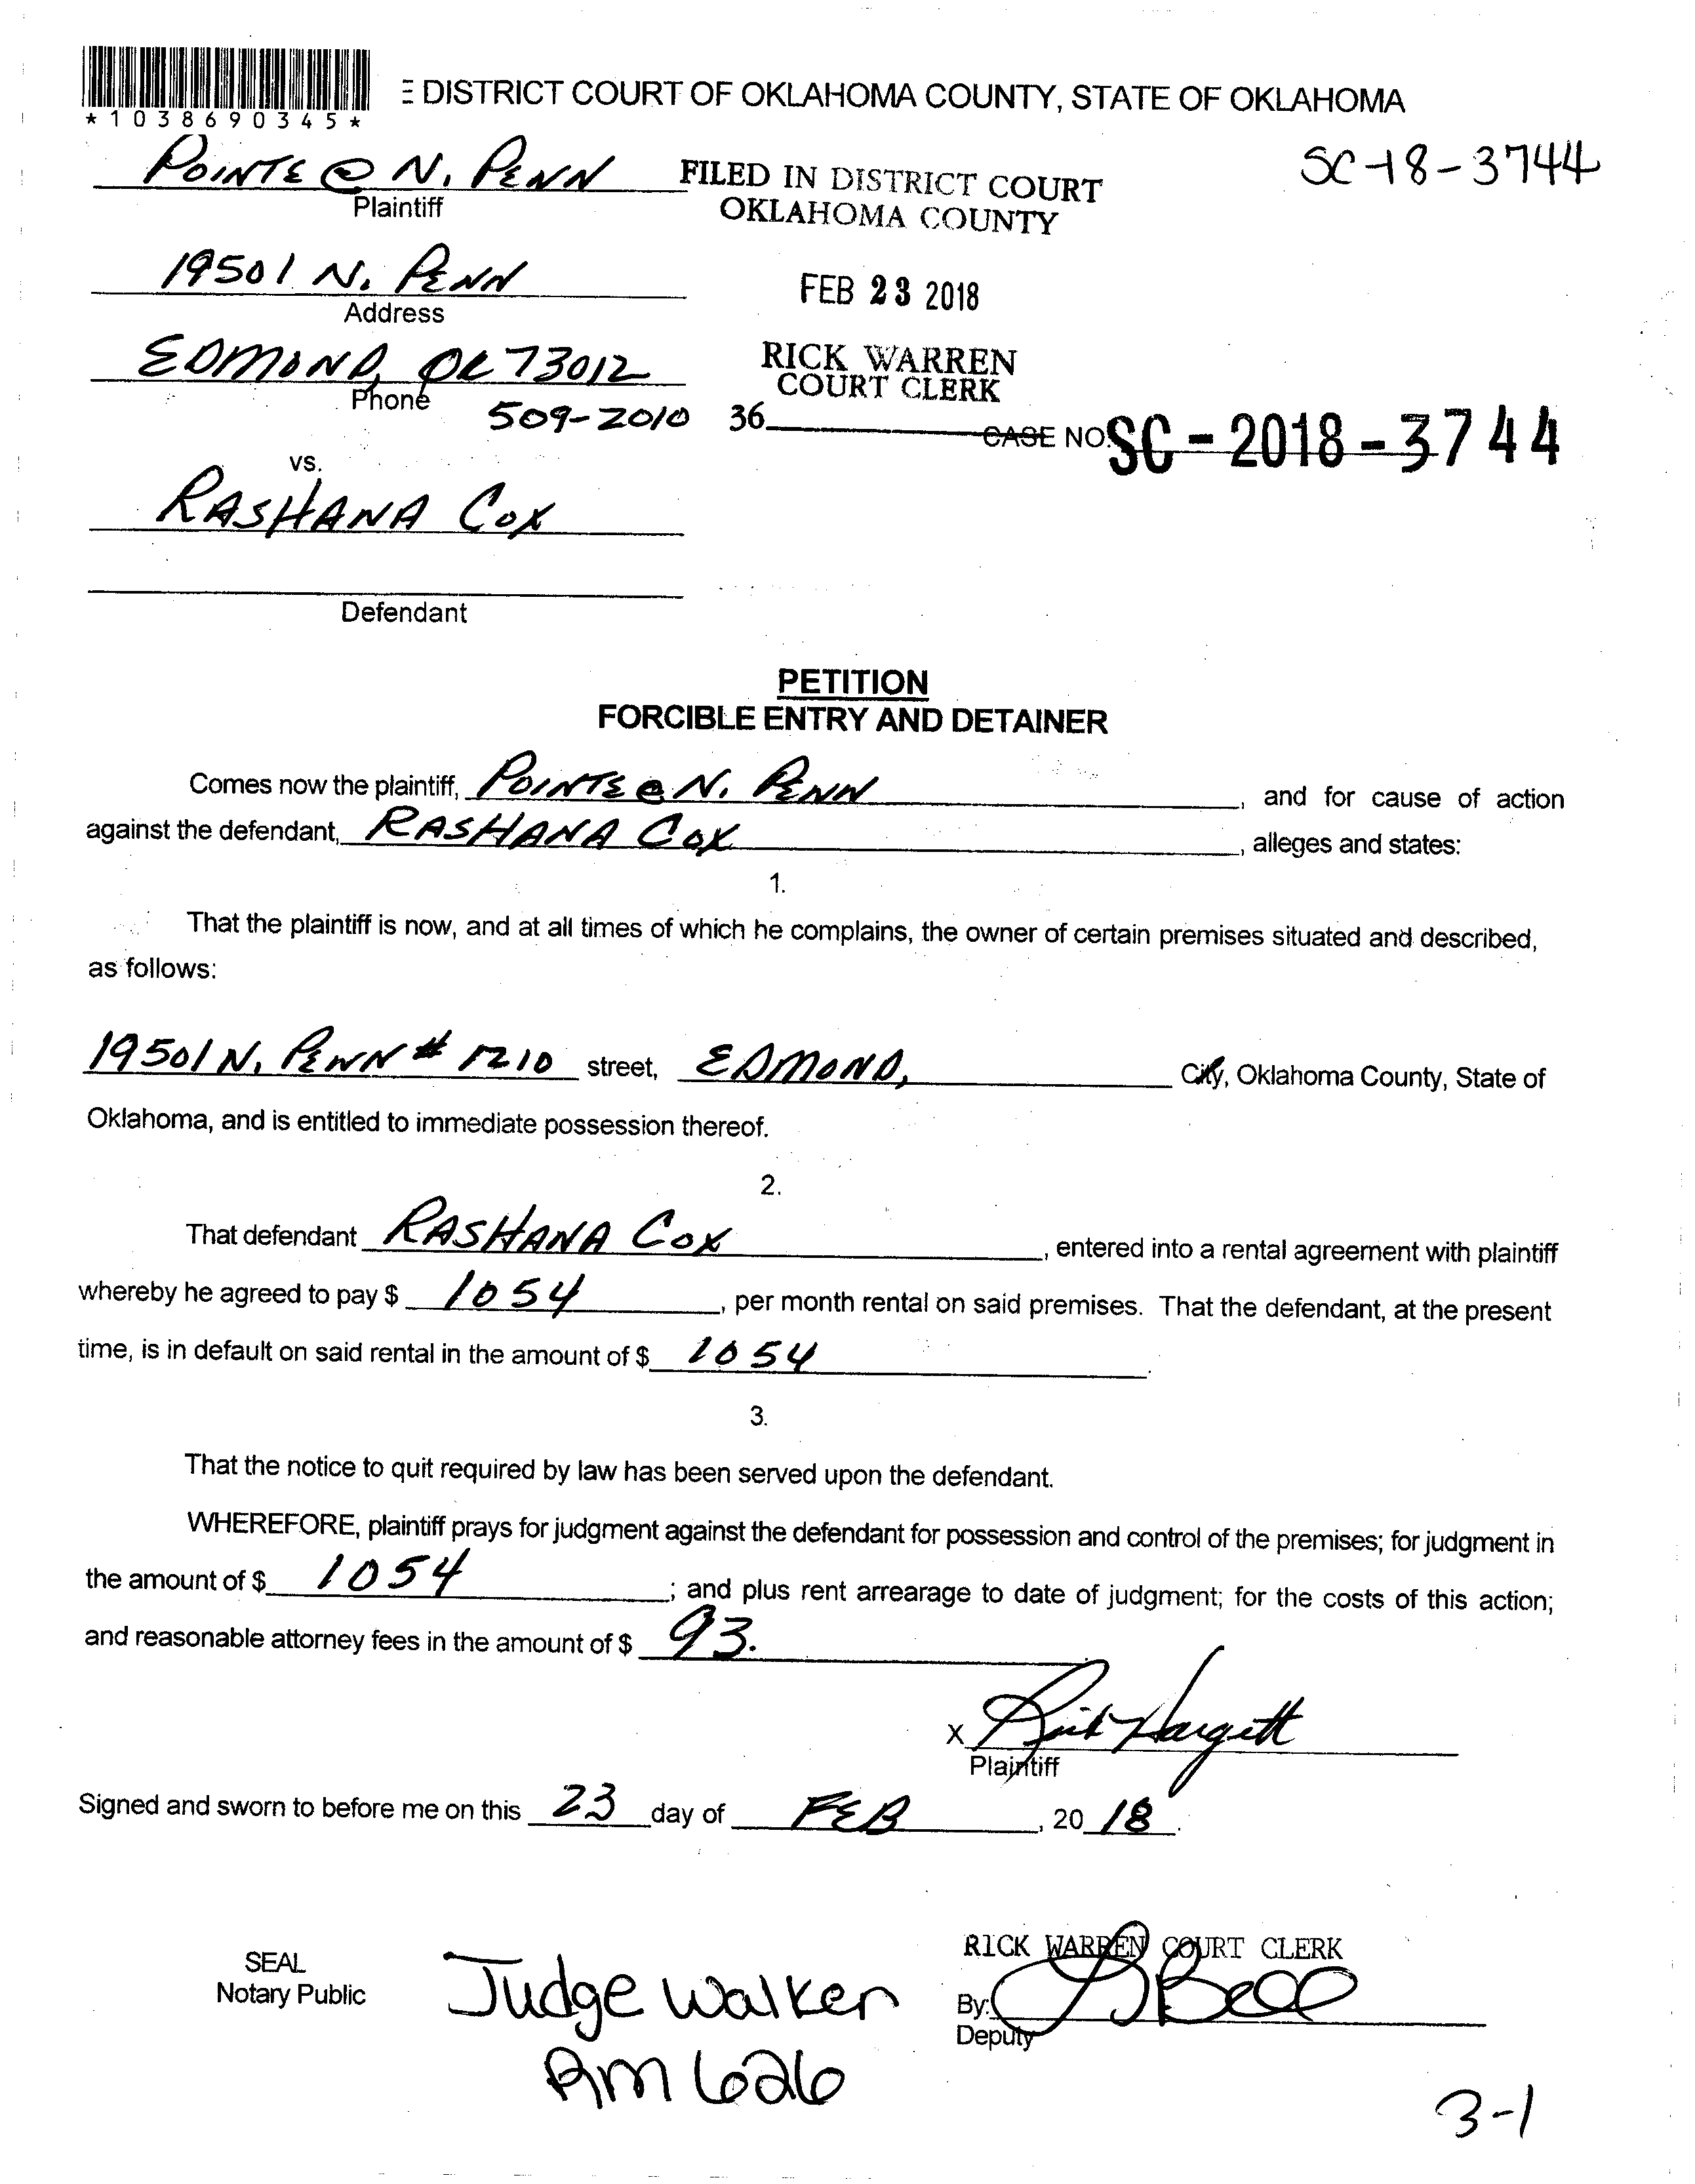 *1038690345*
E DISTRICT COURT OF OKLAHOMA COUNTY, STATE OF OKLAHOMA
SC-18-3744
POINTE @ N. PENN
Plaintiff
FILED IN DISTRICT COURT
OKLAHOMA COUNTY
19501 N. PENN
Address
FEB 23 2018
EDMOND, OK 73012
Phone
509-2010
RICK WARREN
COURT CLERK
36
CASE NO. SC-2018-3744
vs.
RASHANA COX
Defendant
PETITION
FORCIBLE ENTRY AND DETAINER
Comes now the plaintiff, POINTE @ N. PENN, and for cause of action
against the defendant, RASHANA COX, alleges and states:
1.
That the plaintiff is now, and at all times of which he complains, the owner of certain premises situated and described,
as follows:
19501 N. PENN # 1210 street, EDMOND, City, Oklahoma County, State of
Oklahoma, and is entitled to immediate possession thereof.
2.
That defendant RASHANA COX, entered into a rental agreement with plaintiff
whereby he agreed to pay $ 1054, per month rental on said premises. That the defendant, at the present
time, is in default on said rental in the amount of $ 1054.
3.
That the notice to quit required by law has been served upon the defendant.
WHEREFORE, plaintiff prays for judgment against the defendant for possession and control of the premises; for judgment in
the amount of $ 1054; and plus rent arrearage to date of judgment; for the costs of this action;
and reasonable attorney fees in the amount of $ 93.
X Rick Hargett
Plaintiff
Signed and sworn to before me on this 23 day of FEB, 20 18.
SEAL
Notary Public
Judge Walker
Rm 626
RICK WARREN COURT CLERK
By: Bell
Deputy
3-1